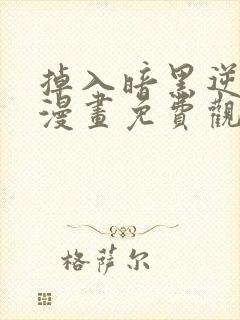 掉入暗黑逆
漫畫免費觀
格萨尔